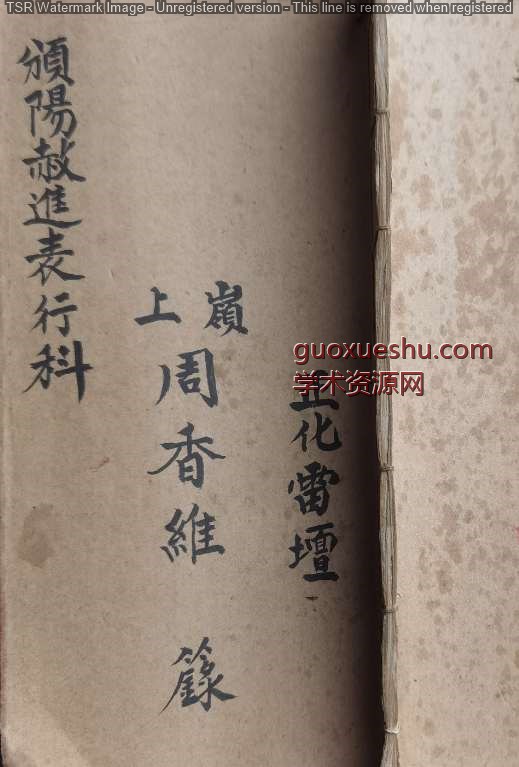 TSR Watermark Image - Unregistered version - This line is removed when registered
guoxueshu.com
学术资源网
化雷壇
嶺上
周香維籙
頒陽赦進表行科